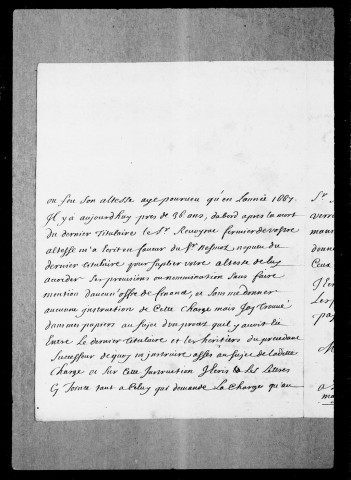 ou feu son altesse aye pourveu qu'en Lannée 1687.
Il y a aujourdhuy pres de 36 ans, dabord apres la mort
du dernier titulaire le Sr. fermier de vostre
altesse m'a Ecrit en faveur du Sr nepveu du
dernier titulaire pour suplier votre altesse de luy
accorder ses provisions ou nommination sans faire
mention daucun offre de finance, et sans me donner
aucune instruction de Cette charge mais Jay trouvé
dans mes papiers au sujet d'un procez quil y avoit Eu
Entre Le dernier titulaire et les heritiers du precedant
Successeur de quoy m'instruire assés au sujet de ladite
Charge et sur Cette Instruction Les Lettres
Cy Jointe tant a Celuy qui demande La Charge qu'au
Sr.
verre
mani
donne
Ceux
Les
pa
a
ma